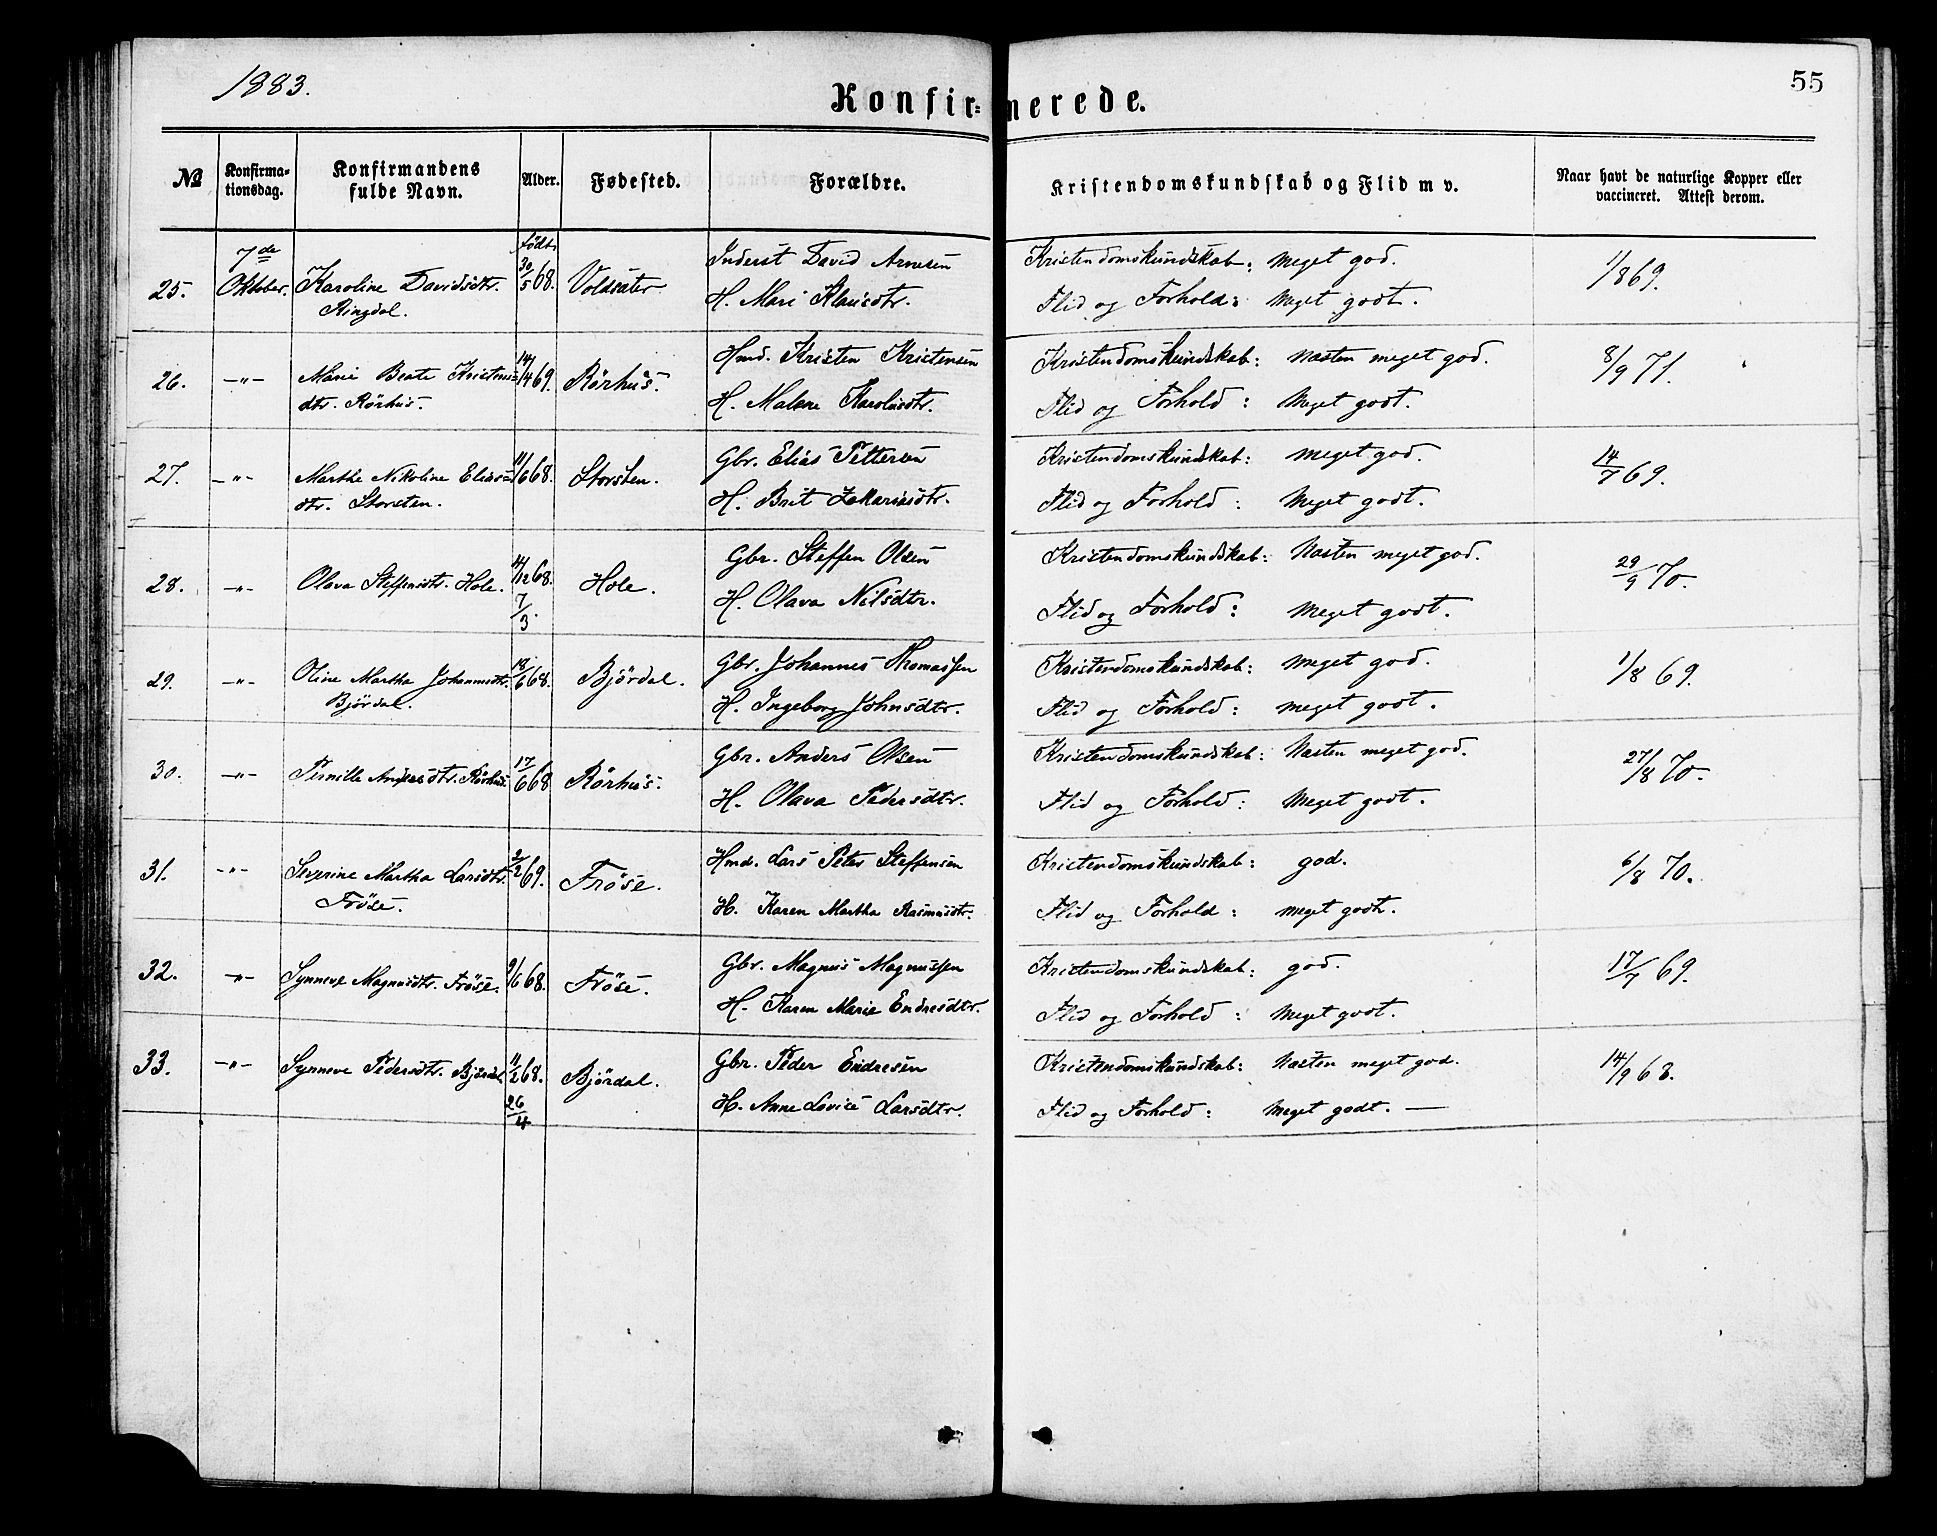 1883.
55
Konfirmerede.
№ Konfirmationsdag. Konfirmandens fulde Navn. Alder. Fødested. Forældre. Kristendomskundskab og Flid m v. Naar havt de naturlige Kopper eller vaccineret. Attest derom.
7de født Inderst David Arnesen Kristendomskundskab: meget god.
25. Oktober. Karoline Davidsdtr. 30/5 68. Voldsæter 1/8 69.
Ringdal. H. Mari Klausdtr. Flid og Forhold: meget godt.
Hmd. Kristen Kristensen Kristendomskundskab: næsten meget god.
26. -"- Marie Beate Kristens= 14/4 69. Rörhus. 8/9 71.
dtr. Rörhus. H. Malene Karolusdtr. Flid og Forhold: meget godt.
Gbr. Elias Pettersen Kristendomskundskab: meget god.
27. -"- Marthe Nikoline Elias= 11/6 68. Storsten. 14/7 69.
dtr. Storsten. H. Brit Zakariasdtr. Flid og Forhold: meget godt.
Gbr. Steffen Olsen Kristendomskundskab: næsten meget god.
28. -"- Olava Steffensdtr. Hole. 14/12 68. Hole. 29/9 70.
7/3. H. Olava Nilsdtr. Flid og Forhold: meget godt.
Gbr. Johannes Thomassen Kristendomskundskab: meget god.
29. -"- Oline Martha Johannesdtr. 18/6 68. Björdal. 1/8 69.
Björdal. H. Ingeborg Johnsdtr. Flid og Forhold: meget godt.
Gbr. Anders Olsen Kristendomskundskab: næsten meget god.
30. -"- Pernille Andersdtr. Rörhus. 17/6 68 Rörhus. 27/8 70.
H. Olava Pedersdtr. Flid og Forhold: meget godt.
Hmd. Lars Peter Steffensen Kristendomskundskab: god.
31. -"- Severine Martha Larsdtr. 2/2 69. Fröse. 6/8 70.
Fröse. H. Karen Martha Rasmusdtr. Flid og Forhold: meget godt.
Gbr. Magnus Magnussen Kristendomskundskab: god.
32. -"- Synneve Magnusdtr. Fröse. 9/6 68. Fröse. 17/7 69.
H. Karen Marie Endresdtr. Flid og Forhold: meget godt.
Gbr. Peder Endresen Kristendomskundskab: næsten meget god.
33. -"- Synneve Pedersdtr. Björdal 11/2 68. Björdal. 14/9 68.
26/4 H. Anne Lovise Larsdtr. Flid og Forhold: meget godt. —